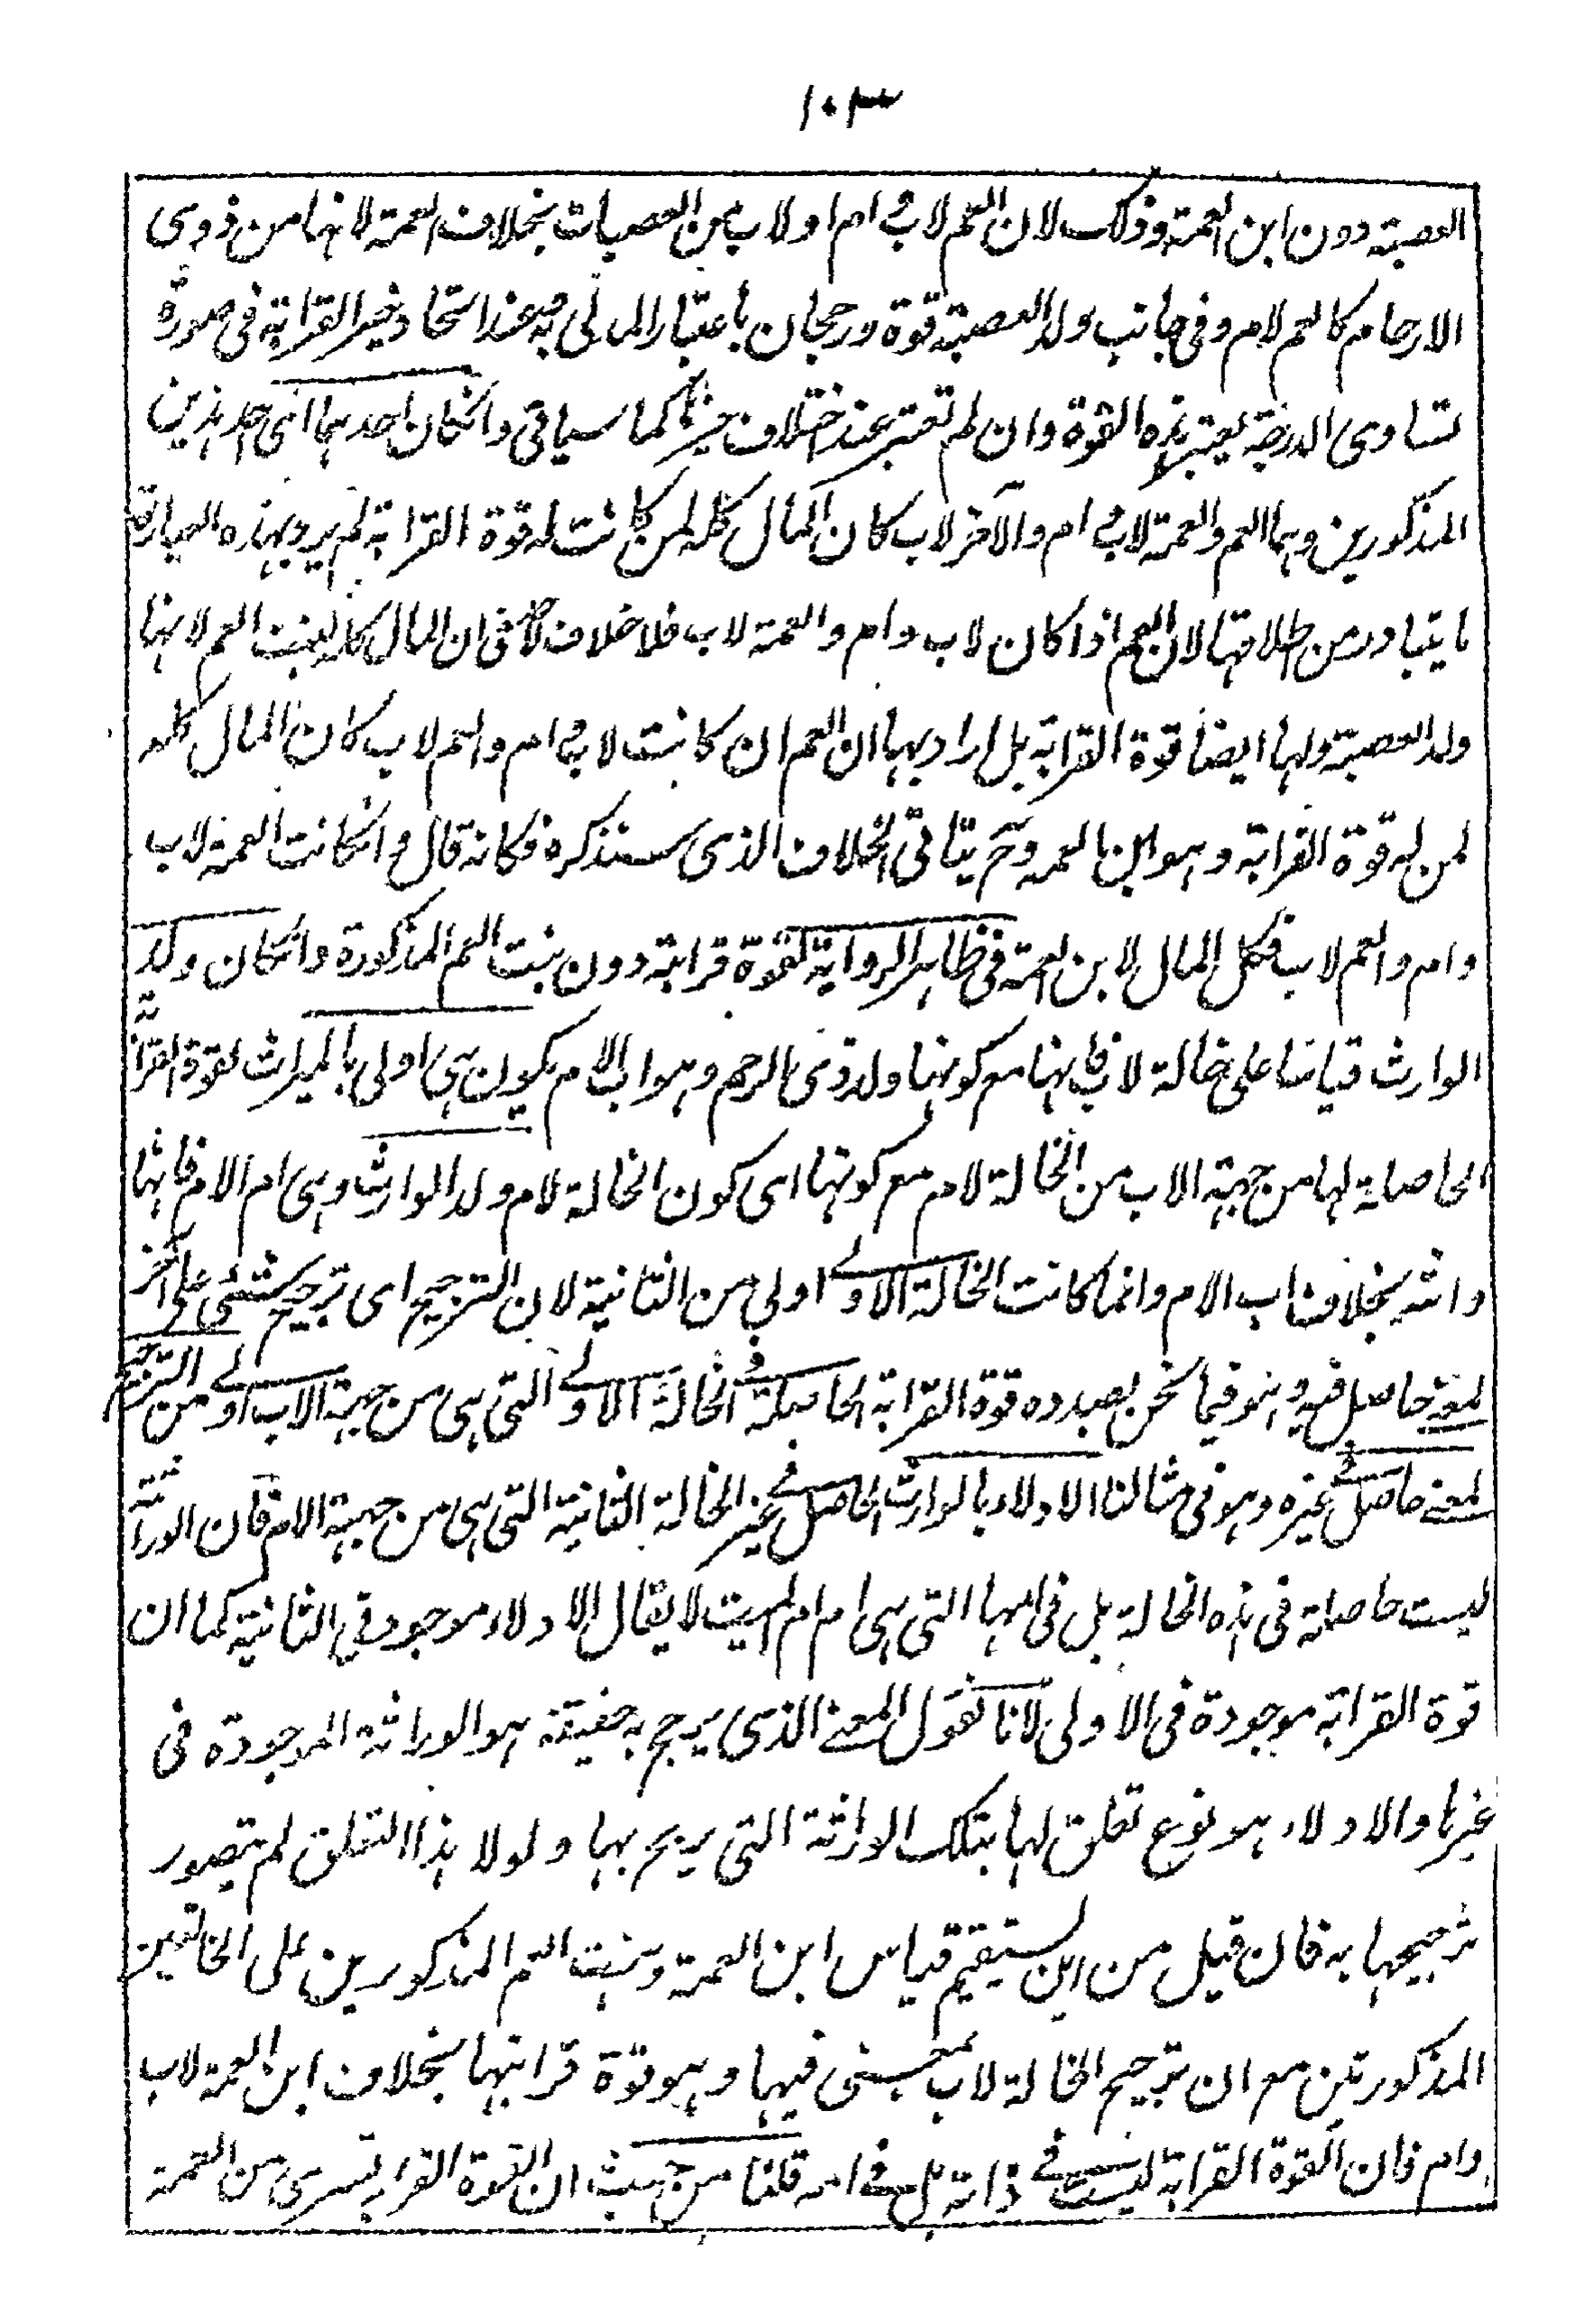 ١٠٣
العصبة دون ابن العمة وذلك لان العم لاب وام او لاب من العصبات بخلاف العمة لانها من ذوى
الارحام كالعم لام وفى جانب ولد العصبة قوة ورجحان باعتبار المدلى به فعند اتحاد حيز القرابة فى صورة
تساوى الدرجة يعتبر هذه القوة وان لم تعتبر عند اختلاف حيزها كما سياتى وان كان احدهما اى احد هذين
المذكورين وهما العم والعمة لاب وام والآخر لاب كان المال كله لمن كانت له قوة القرابة لم يرد بهذه العبارة
ما يتبادر من اطلاقها لان العم اذا كان لاب وام والعمة لاب فلا خلاف فى ان المال كله لبنت العم لانها
ولد العصبة ولها ايضا قوة القرابة بل اراد بها ان العمة ان كانت لاب وام والعم لاب كان المال كله
لمن له قوة القرابة وهو ابن العمة وح يتاتى الخلاف الذى سنذكره فكانه قال وان كانت العمة لاب
وام والعم لاب فكل المال لابن العمة فى ظاهر الرواية لقوة قرابته دون بنت العم المذكورة وان كان ولد
الوارث قياسا على خالة لاب فانها مع كونها ولد ذى الرحم وهو اب الام يكون هى اولى بالميراث لقوة القرابة
الحاصلة لها من جهة الاب من الخالة لام مع كونها اى كون الخالة لام ولد الوارث وهى ام الام فانها
وارثه بخلاف اب الام وانما كانت الخالة الاولى اولى من الثانية لان الترجيح اى ترجيح شئى على آخر
لمعنى حاصل فيه وهو فيما نحن بصدده قوة القرابة الحاصلة فى الخالة الاولى التى هى من جهة الاب اولى من الترجيح
لمعنى حاصل فى غيره وهو فى مثالنا الادلاء بالوارث الحاصل فى غير الخالة الثانية التى هى من جهة الام فان الوراثة
ليست حاصلة فى هذه الخالة بل فى امها التى هى ام ام الميت لا يقال الادلاء موجود فى الثانية كما ان
قوة القرابة موجودة فى الاولى لانا نقول المعنى الذى يرجح به حقيقة هو الوراثة الموجودة فى
غيرها والادلاء هو نوع تعلق لها بتلك الوراثة التى يرجح بها ولولا هذا التعلق لم يتصور
ترجيحها به فان قيل من اين يستقيم قياس ابن العمة وبنت العم المذكورين على الخالتين
المذكورتين مع ان ترجيح الخالة لاب بمعنى فيها وهو قوة قرابتها بخلاف ابن العمة لاب
وام فان القوة القرابة ليست فى ذاته بل فى امه قلنا من حيث ان القوة القرابة تسرى من العمة